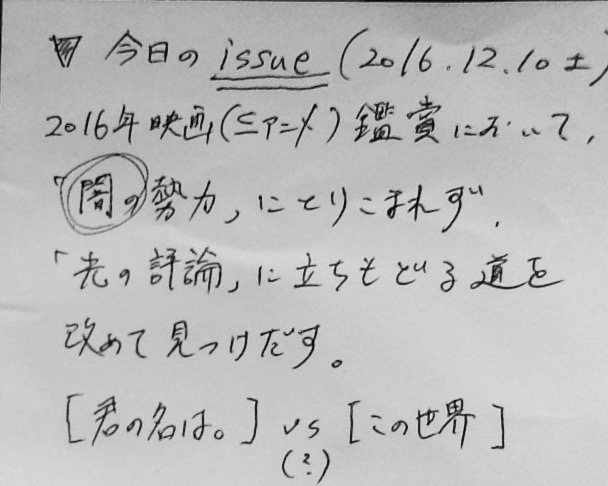 今日の issue (2016.12.10 土)
2016年映画(≦アニメ)鑑賞において,
「闇の勢力」にとりこまれず,
「光の評論」に立ちもどる道を
改めて見つけだす。
[君の名は。] vs [この世界]
(?)